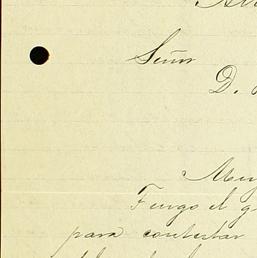 Señor
D.
Muy
Tengo el g
para contestar